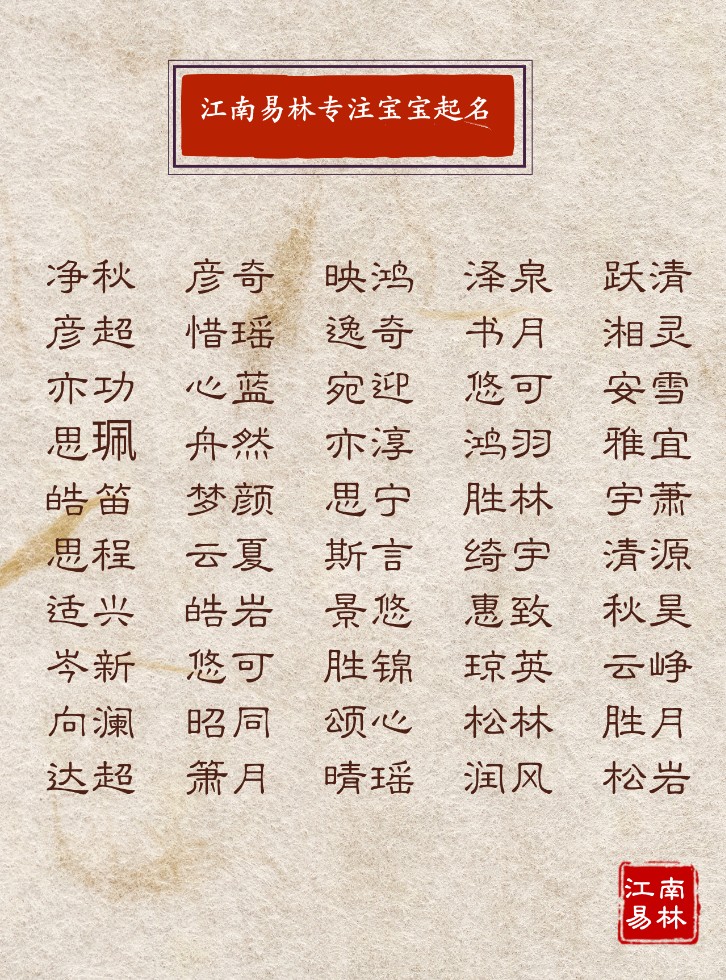 江南易林专注宝宝起名
净秋 彦奇 映鸿 泽泉 跃清
彦超 惜瑶 逸奇 书月 湘灵
亦功 心蓝 宛迎 悠可 安雪
思珮 舟然 亦淳 鸿羽 雅宜
皓笛 梦颜 思宁 胜林 宇萧
思程 云夏 斯言 绮宇 清源
适兴 皓岩 景悠 惠致 秋昊
岑新 悠可 胜锦 琼英 云峥
向澜 昭同 颂心 松林 胜月
达超 箫月 晴瑶 润风 松岩
江南
易林